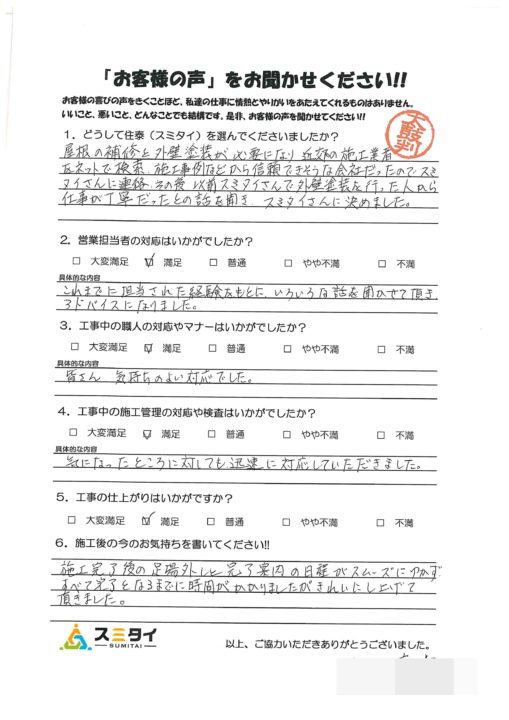 「お客様の声」をお聞かせください!!
お客様の喜びの声をきくことほど、私達の仕事に情熱とやりがいをあたえてくれるものはありません。
いいこと、悪いこと、どんなことでも結構です。是非、お客様の声を聞かせてください!!
太鼓判
1．どうして住泰（スミタイ）を選んでくださいましたか？
屋根の補修と外壁塗装が必要になり近郊の施工業者
をネットで検索、施工事例などから信頼できそうな会社だったのでスミ
タイさんに連絡、その後以前スミタイさんで外壁塗装を行った人から
仕事が丁寧だったとの話を聞き、スミタイさんに決めました。
2．営業担当者の対応はいかがでしたか？
□ 大変満足 ☑ 満足 □ 普通 □ やや不満 □ 不満
具体的な内容
これまでに担当された経験をもとに、いろいろな話を聞かせて頂き
アドバイスになりました。
3．工事中の職人の対応やマナーはいかがでしたか？
□ 大変満足 ☑ 満足 □ 普通 □ やや不満 □ 不満
具体的な内容
皆さん 気持ちのよい対応でした。
4．工事中の施工管理の対応や検査はいかがでしたか？
□ 大変満足 ☑ 満足 □ 普通 □ やや不満 □ 不満
具体的な内容
気になったところに対しても迅速に対応していただきました。
5．工事の仕上がりはいかがですか？
□ 大変満足 ☑ 満足 □ 普通 □ やや不満 □ 不満
6．施工後の今のお気持ちを書いてください!!
施工完了後の足場外しと完了案内の日程がスムーズにゆかず
すべて完了となるまでに時間がかかりましたがきれいにし上げて
頂きました。
スミタイ
SUMITAI
以上、ご協力いただきありがとうございました。